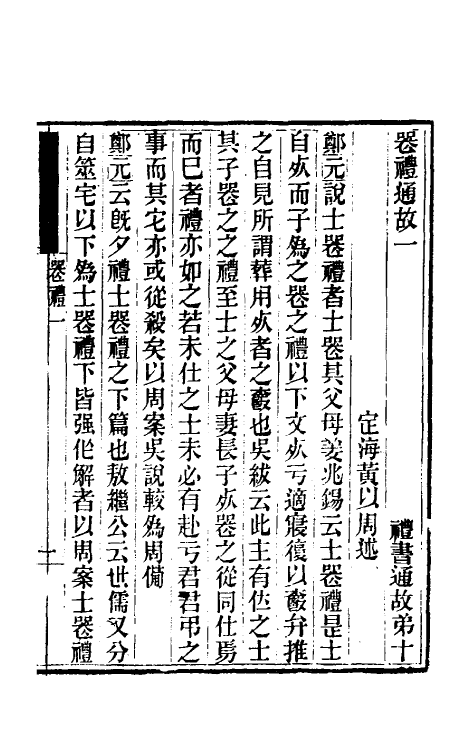 喪禮通故一　禮書通故弟十
定海黃以周述
鄭元說士喪禮者士喪其父母姜兆錫云士喪禮是士
自死而子為之喪之禮以下文死亏適寢復以爵弁推
之自見所謂葬用死者之爵也吳紱云此主有位之士
其子喪之之禮至士之父母妻長子死喪之從同仕焉
而已者禮亦如之若未仕之士未必有赴亏君君弔之
事而其它亦或從殺矣以周案吳說較為周僃
鄭元云旣夕禮士喪禮之下篇也敖繼公云世儒又分
自筮宅以下為士喪禮下皆强作解者以周案士喪禮
喪禮一
一